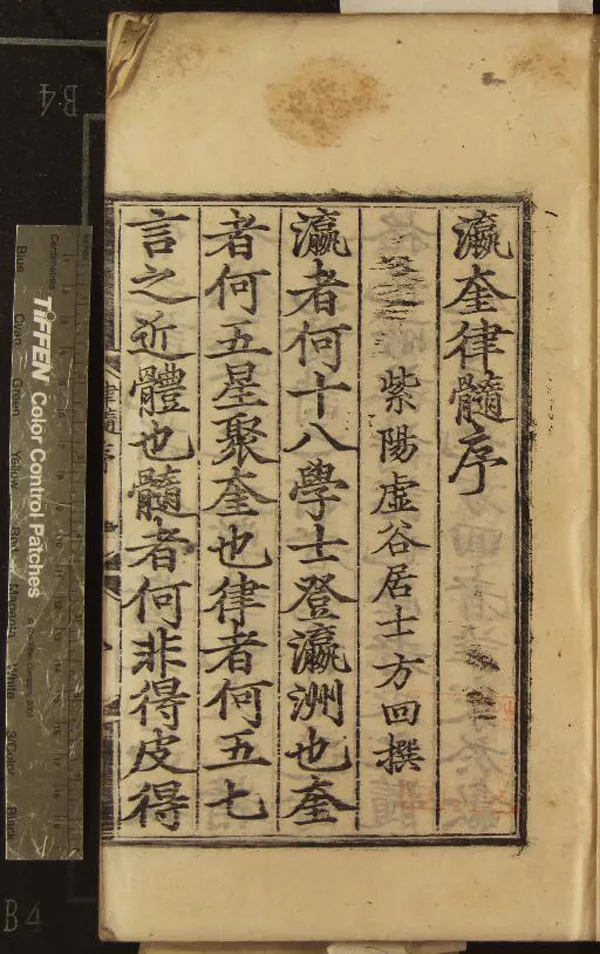 瀛奎律髓序
紫陽虛谷居士方回撰
瀛者何十八學士登瀛洲也奎
者何五星聚奎也律者何五七
言之近體也髓者何非得皮得
律髓序
B4
TIFFEN Color Control Patches
Centimetres
Blue
Cyan
Green
Yellow
Red
Magenta
White
3/Color
Black
B4